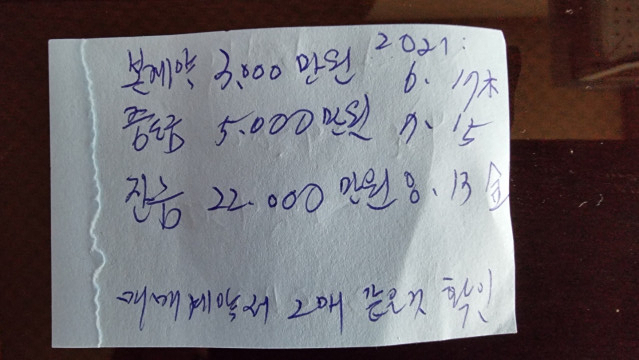 본계약 3,000 만원 2021:
6. 17木
중도금 5.000 만원 7. 15
잔금 22.000 만원 8. 13 金
매매계약서 2매 같은것 확인